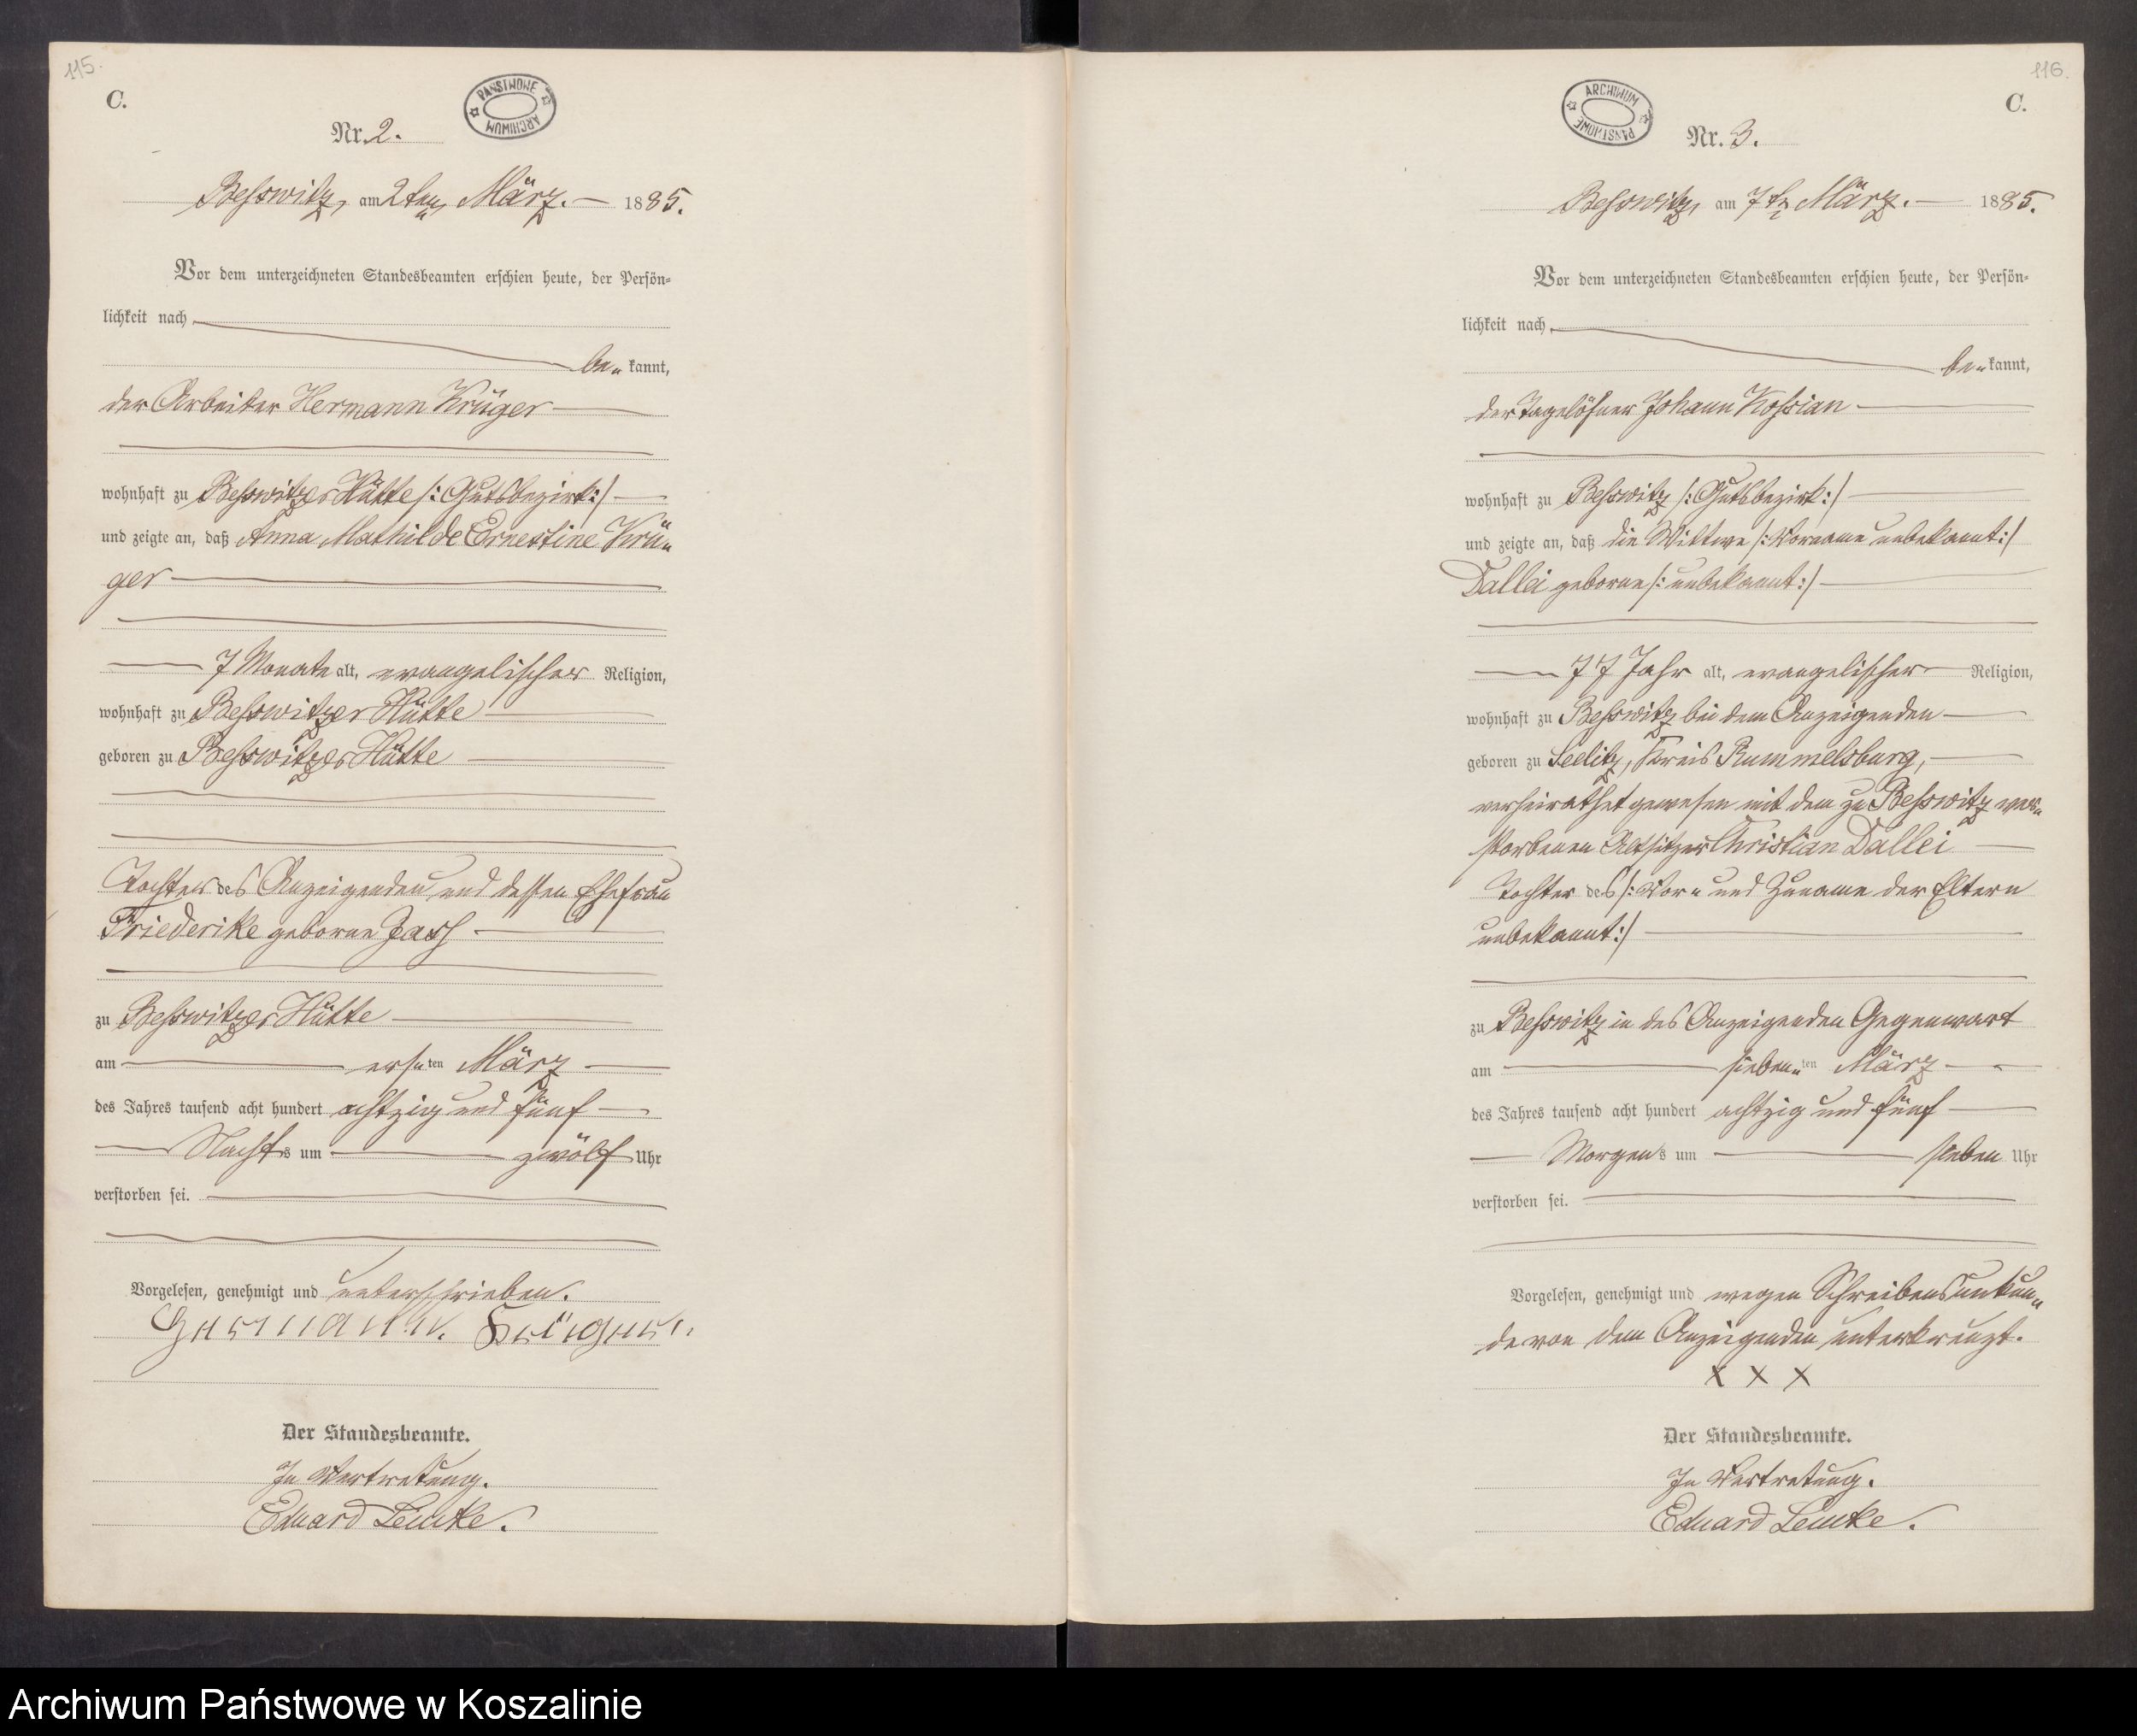 115.
C.
PAŃSTWOWE ARCHIWUM
Nr. 2.
Besswitz, am 2ten März. 1885.
Vor dem unterzeichneten Standesbeamten erschien heute, der Persön-
lichkeit nach
be- kannt,
der Arbeiter Hermann Krüger
wohnhaft zu Besswitzer Hütte /: Gutsbezirk :/
und zeigte an, daß Anna Mathilde Ernestine Krü-
ger
7 Monate alt, evangelischer Religion,
wohnhaft zu Besswitzer Hütte
geboren zu Besswitzer Hütte
Tochter des Anzeigenden und dessen Ehefrau
Friederike geborne
zu Besswitzer Hütte
am ers-ten März
des Jahres tausend acht hundert achtzig und fünf
Nachts um zwölf Uhr
verstorben sei.
Vorgelesen, genehmigt und unterschrieben.
Hermann Krüger
Der Standesbeamte.
In Vertretung.
Eduard Lemke.
116.
C.
ARCHIWUM PAŃSTWOWE
Nr. 3.
Besswitz, am 7ten März. 1885.
Vor dem unterzeichneten Standesbeamten erschien heute, der Persön-
lichkeit nach
be- kannt,
der Tagelöhner Johann Kossian
wohnhaft zu Besswitz /: Gutsbezirk :/
und zeigte an, daß die Wittwe /: Vorname unbekannt :/
Dallei geborne /: unbekannt :/
77 Jahr alt, evangelischer Religion,
wohnhaft zu Besswitz bei dem Anzeigenden
geboren zu Seelitz, Kreis Rummelsburg,
verheirathet gewesen mit dem zu Besswitz ver-
storbenen Altsitzer Christian Dallei
Tochter des /: Vor- und Zuname der Eltern
unbekannt :/
zu Besswitz in des Anzeigenden Gegenwart
am sieben-ten März
des Jahres tausend acht hundert achtzig und fünf
Morgens um sieben Uhr
verstorben sei.
Vorgelesen, genehmigt und wegen Schreibensunkun-
de von dem Anzeigenden unterkreuzt.
X X X
Der Standesbeamte.
In Vertretung.
Eduard Lemke.
Archiwum Państwowe w Koszalinie